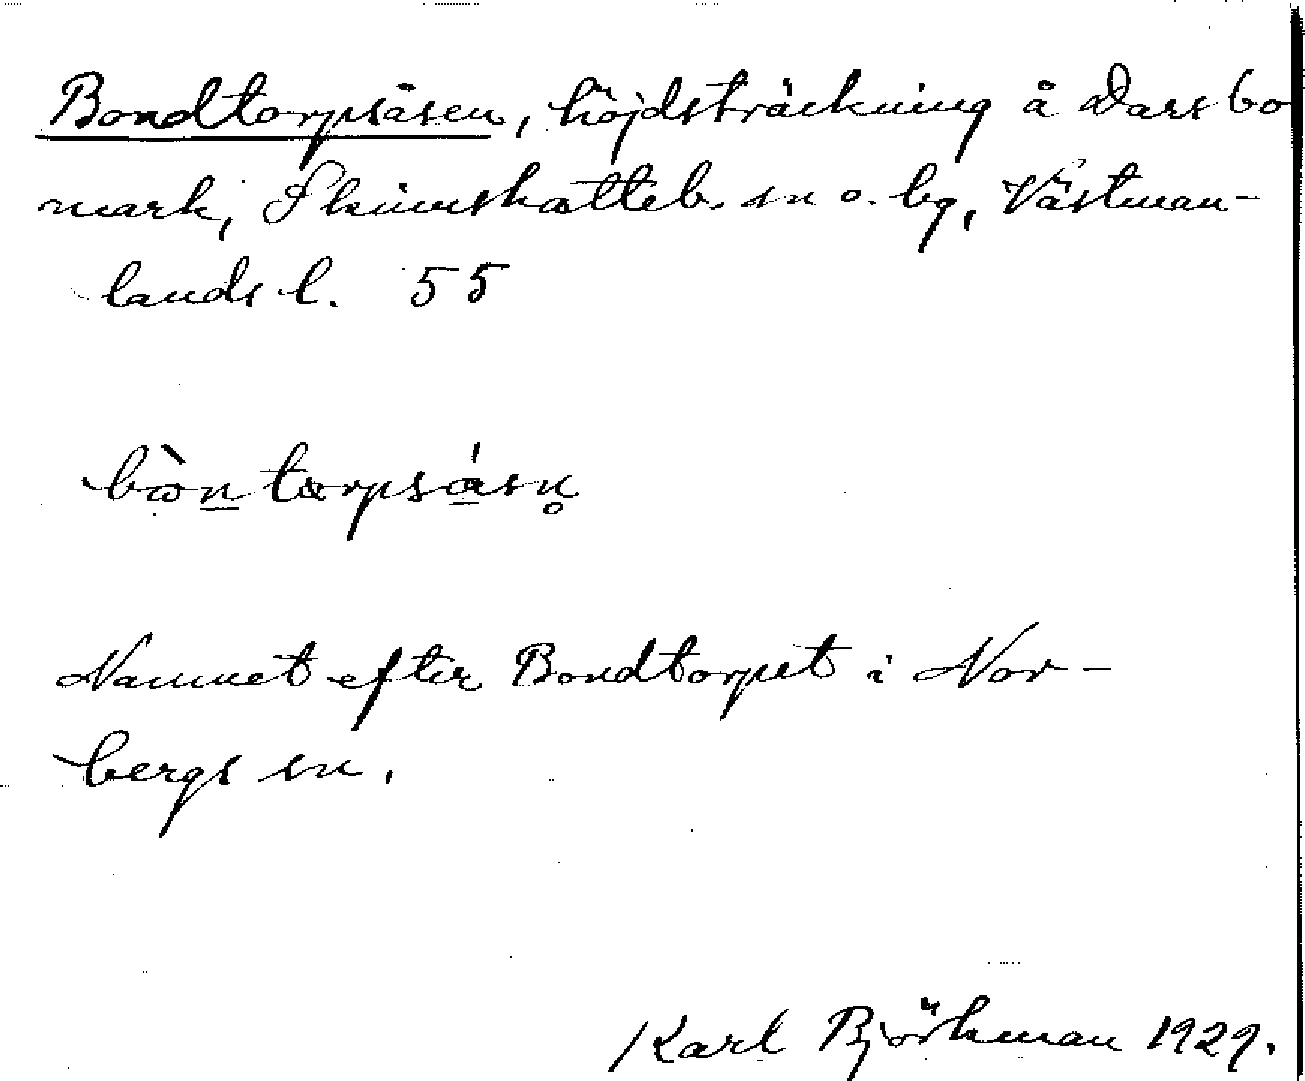 Bondtorpsåsen, höjdsträckning å Darsbo
mark, Skinnskatteb. sn o. bg, Västman-
lands l. 55
bòn torpsásn̥
Namnet efter Bondtorpet i Nor-
bergs sn.
Karl Björkman 1929.